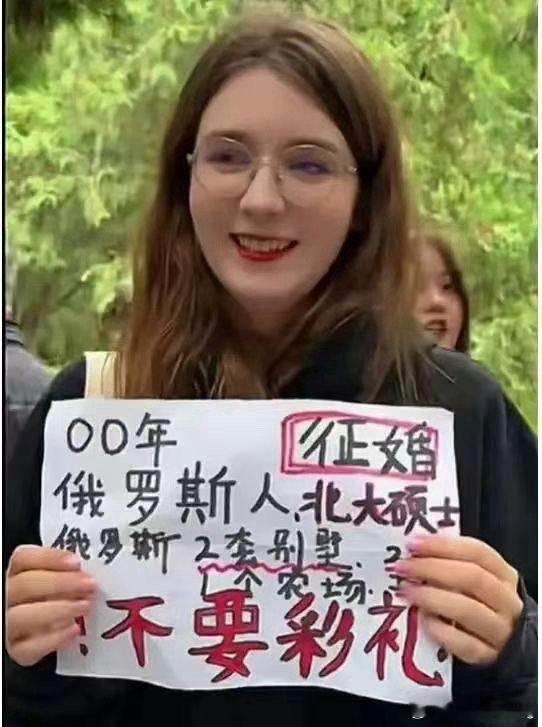 00年 征婚
俄罗斯人、北大硕士
俄罗斯 2套别墅. 2
1个农场.
!不要彩礼